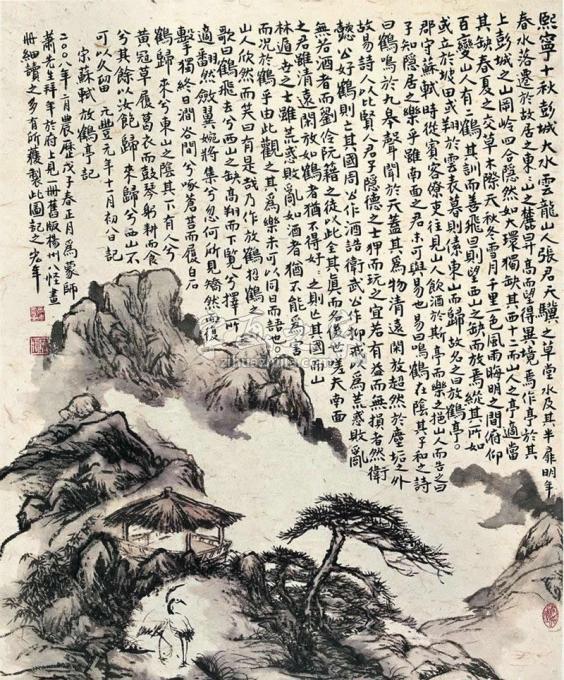 熙寧十秋彭城大水雲龍山人張君天驥之草堂水及其半扉明年
春水落遷於故居之東東山之麓昇高而望得異境焉作亭於其
上彭城之山岡岭四合隱然如大環獨缺其西十二而山人之亭適當
其缺春夏之交草木際天秋冬雪月千里一色風雨晦明之間俯仰
百變山人有二鶴甚訓而善飛旦則望西山之缺而放焉縱其所如
或立於坡田或翔於雲表暮則傃東山而歸故名之曰放鶴亭
郡守蘇軾時從賓客僚吏往見山人飲酒於斯亭而樂之挹山人而告之曰
子知隱居之樂乎雖南面之君未可與易也易曰鳴鶴在陰其子和之詩
曰鶴鳴於九皋聲聞於天蓋其為物清遠閑放超然於塵垢之外
故易詩人以比賢人君子隱德之士狎而玩之宜若有益而無損者然衛
懿公好鶴則亡其國周公作酒誥衛武公作抑戒以為荒惑敗亂
無若酒者而劉伶阮籍之徒以此全其真而名後世嗟夫南面
之君雖清遠閑放如鶴者猶不得好之則亡其國而山
林遁世之士雖荒惑敗亂如酒者猶不能為害
而況於鶴乎由此觀之其為樂未可以同日而語也
山人欣然而笑曰有是哉乃作放鶴招鶴之
歌曰鶴飛去兮西山之缺高翔而下覽兮擇所
適翻然斂翼婉將集兮忽何所見矯然而復
擊獨終日澗谷間兮啄蒼苔而履白石
鶴歸來兮東山之陰其下有人兮
黃冠草履葛衣而鼓琴躬耕而食
兮其餘以汝飽歸來歸兮西山不
可以久留 元豐元年十一月初八日記
宗蘇軾放鶴亭記
二〇〇八年二月農歷戊子春正月為蒙師
蕭先生拜年於府上見一冊舊版揚州八怪畫
冊細讀之多有所獲製此圖記之宏年
zihuazhijia.com